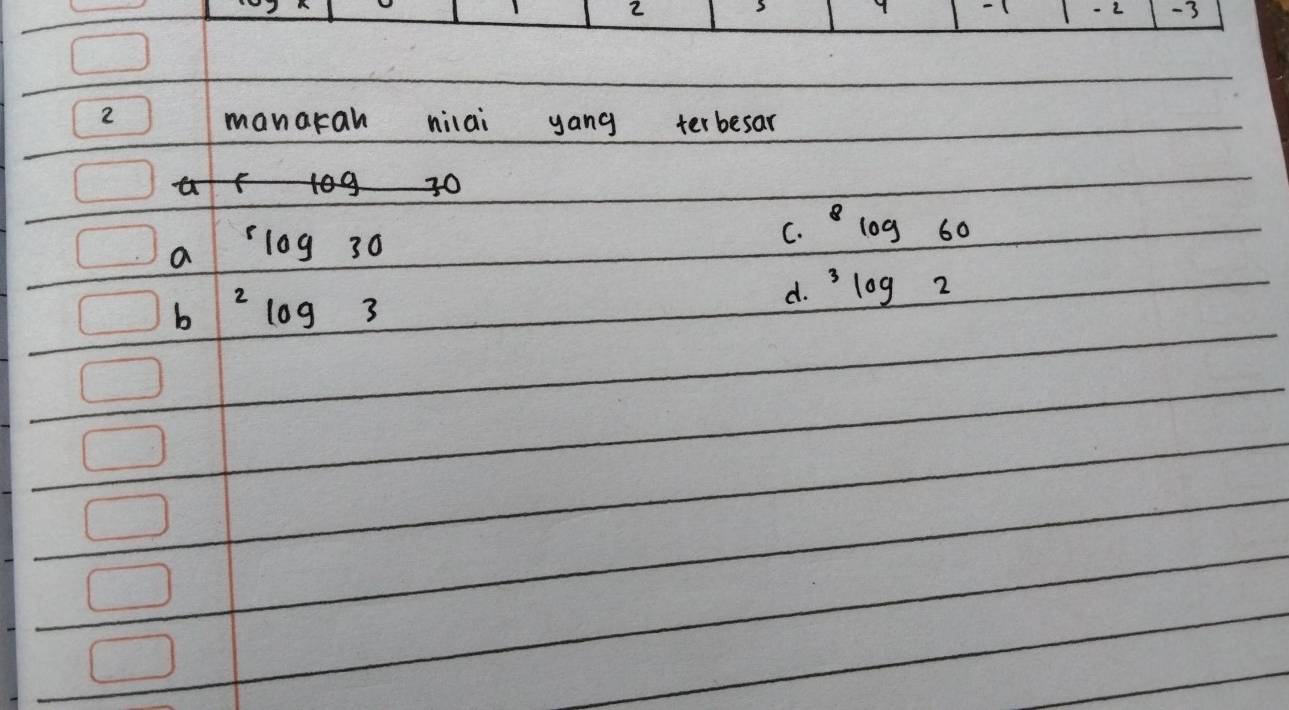 log x 0 1 2 3 4 -1 -2 -3
2 manakah nilai yang terbesar
a 5 log 30
a ⁵log 30 c. ⁸ log 60
b ² log 3 d. ³ log 2